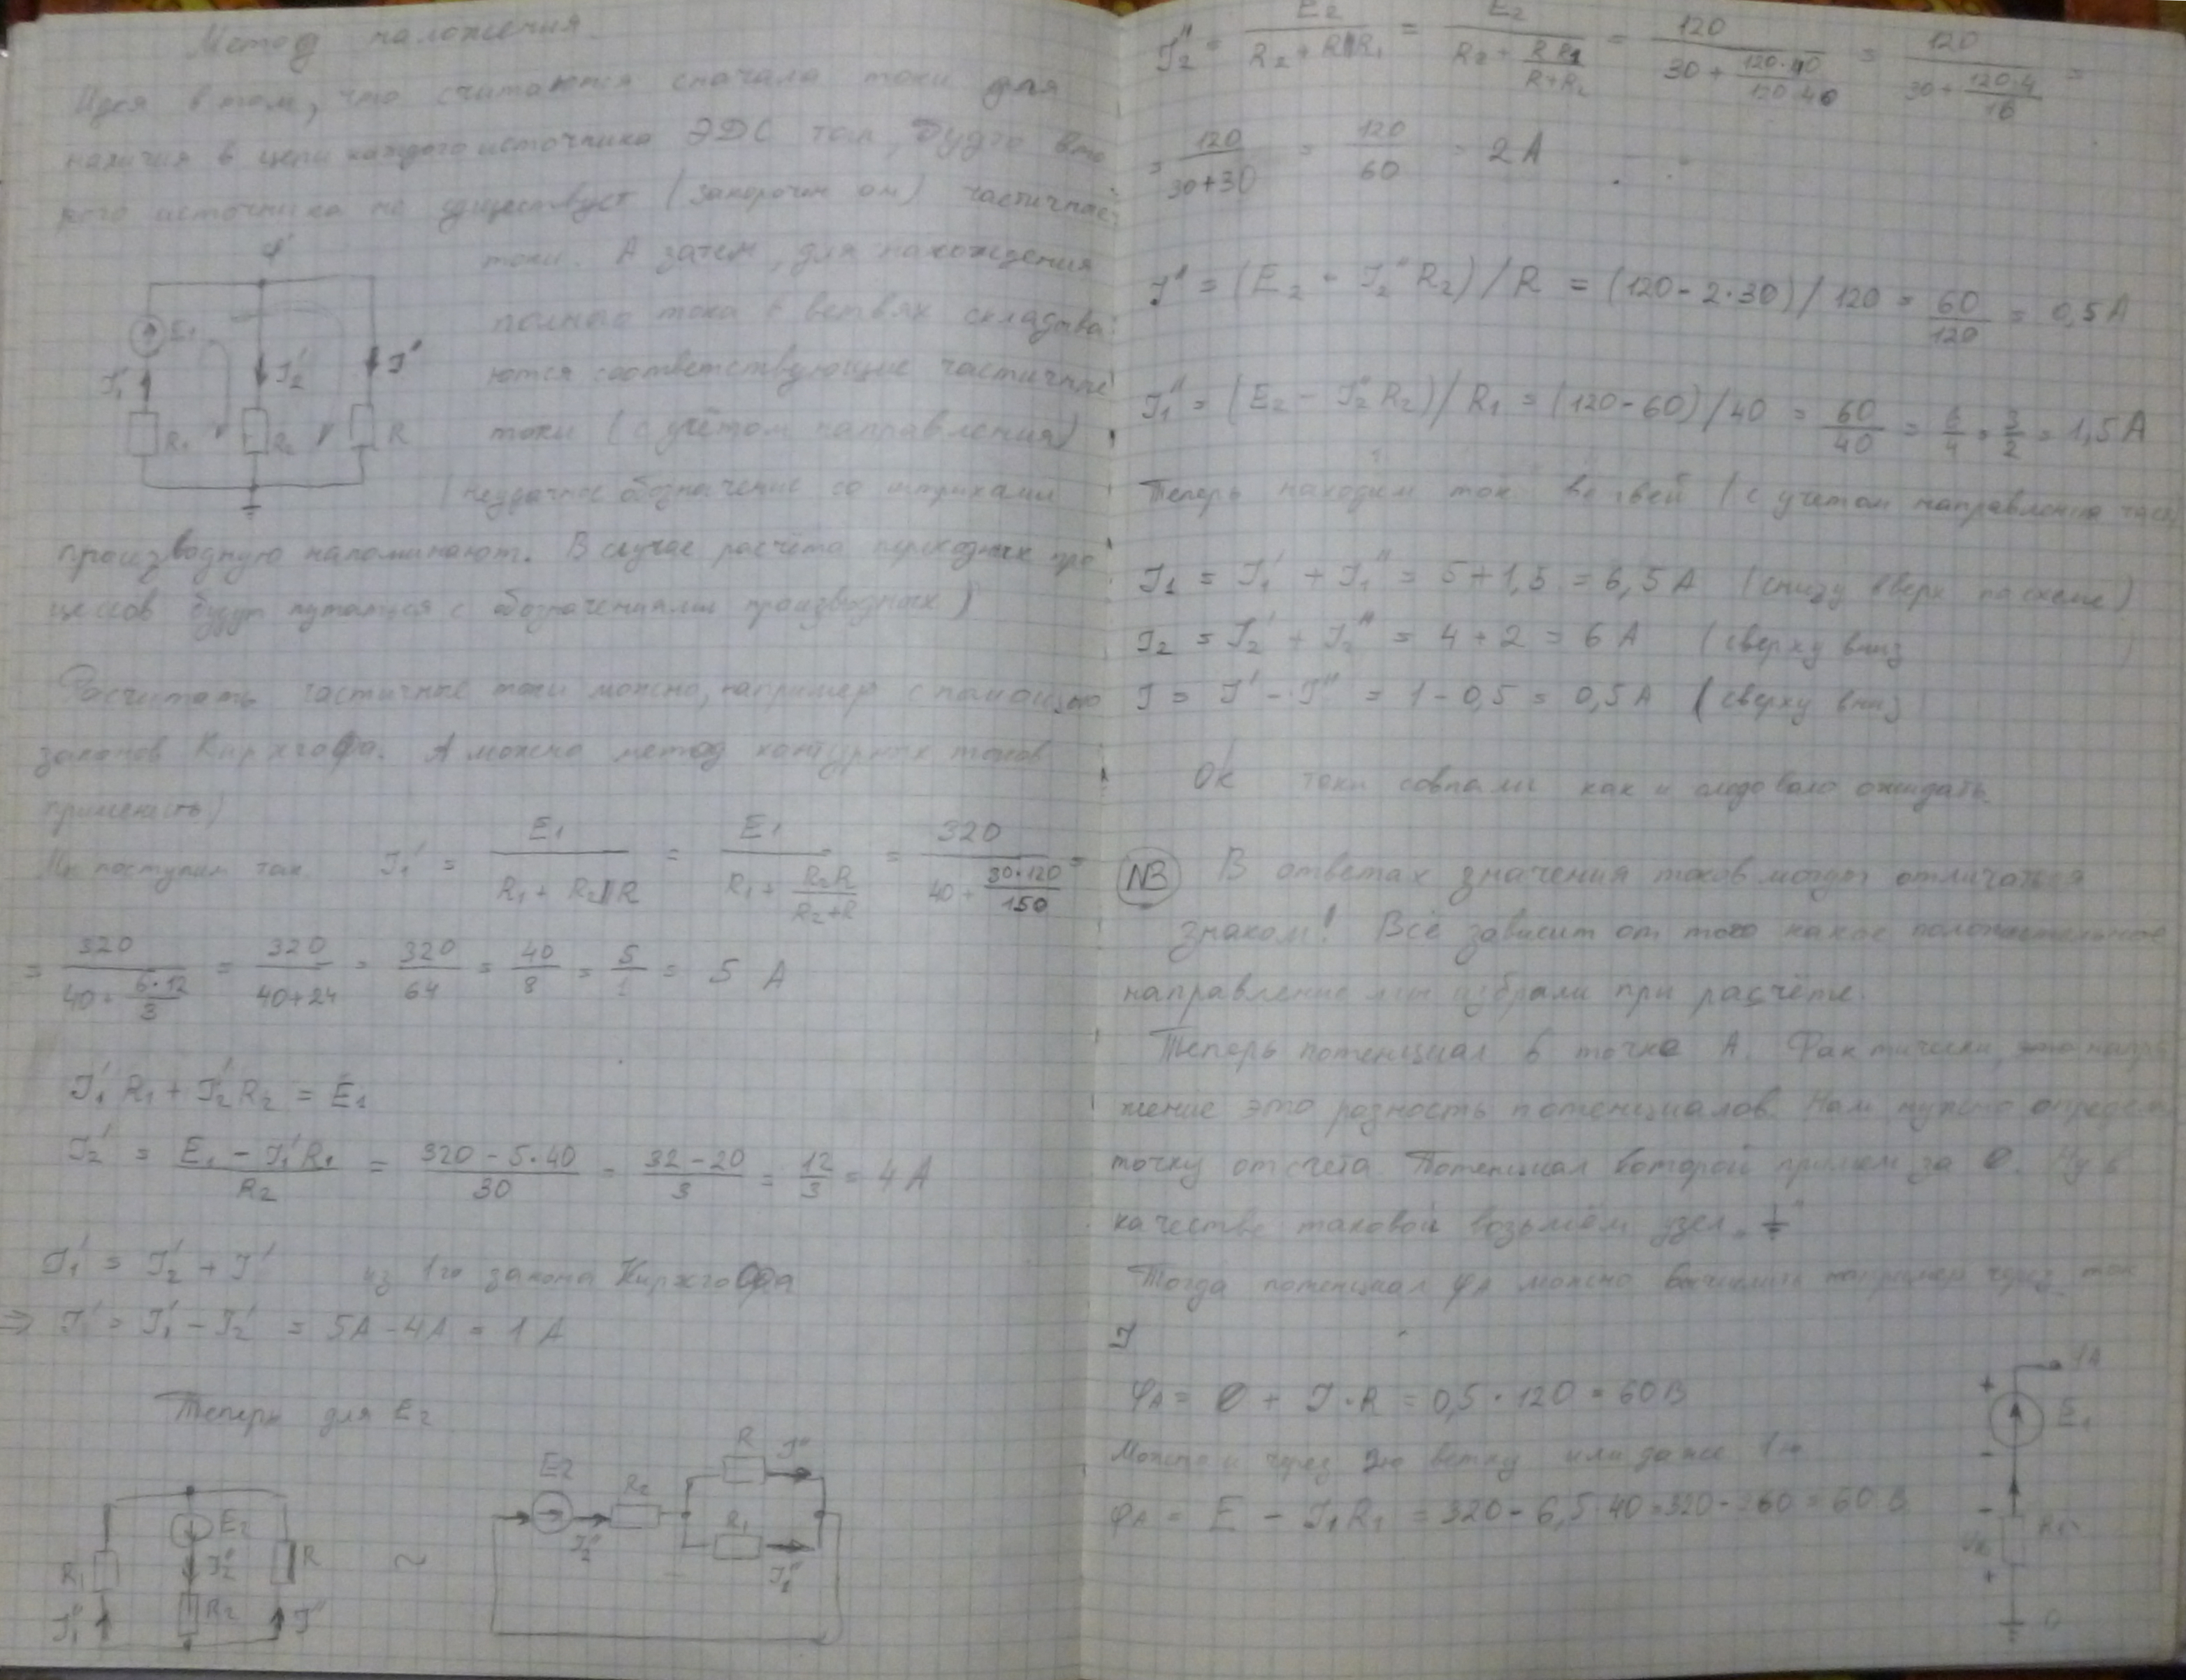 Метод наложения.
Идея в том, что считаются сначала токи для
наличия в цепи каждого источника ЭДС так, будто вто
рого источника не существует (закорочен он) частичные
токи. А затем, для нахождения
полного тока в ветвях складыва
ются соответствующие частичные
токи (с учётом направления)
(неудачное обозначение со штрихами
производную напоминают. В случае расчёта переходных про
цессов будут путаться с обозначениями производных)
E₁
I₁' I₂' I'
R₁ R₂ R
Расчитать частичные токи можно, например с помощью
законов Кирхгофа. А можно метод контурных токов
применить)
Мы поступим так I₁' = E₁/(R₁ + R₂||R) = E₁/(R₁ + R₂R/(R₂+R)) = 320/(40 + 30·120/150) =
= 320/(40 + 6·12/3) = 320/(40+24) = 320/64 = 40/8 = 5/1 = 5 А
I₁'R₁ + I₂'R₂ = E₁
I₂' = (E₁ - I₁'R₁)/R₂ = (320 - 5·40)/30 = (32-20)/3 = 12/3 = 4 А
I₁' = I₂' + I' из 1го закона Кирхгофа
⇒ I' = I₁' - I₂' = 5А - 4А = 1 А
Теперь для E₂
R₁ E₂ I₂'' R₂ R I₁'' I''
~
E₂ I₂'' R₂ R I'' R₁ I₁''
I₂'' = E₂/(R₂ + R||R₁) = E₂/(R₂ + R R₁/(R+R₂)) = 120/(30 + 120·40/120·40) = 120/(30 + 120·4/16) =
= 120/(30+30) = 120/60 = 2 А
I'' = (E₂ - I₂''R₂)/R = (120 - 2·30)/120 = 60/120 = 0,5 А
I₁'' = (E₂ - I₂''R₂)/R₁ = (120-60)/40 = 60/40 = 6/4 = 3/2 = 1,5 А
Теперь находим ток ветвей (с учетом направления
I₁ = I₁' + I₁'' = 5 + 1,5 = 6,5 А (снизу вверх по схеме)
I₂ = I₂' + I₂'' = 4 + 2 = 6 А (сверху вниз
I = I' - I'' = 1 - 0,5 = 0,5 А (сверху вниз)
Ок токи совпали как и следовало ожидать.
NB В ответах значения токов могут отличаться
знаком! Всё зависит от того какое положительное
направление мы избрали при расчёте.
Теперь потенциал в точке А. Фактически, это напр
жение это разность потенциалов. Нам нужно определ
точку отсчета. Потенциал которой примем за 0. Ну в
качестве таковой возьмём узел "⏚"
Тогда потенциал φА можно вычислить например через ток
I
φА = 0 + I·R = 0,5·120 = 60 В
Можно и через 2ю ветку или даже 1ю
φА = E - I₁R₁ = 320 - 6,5·40 = 320 - 260 = 60 В
+ E₁
-
-
+
0